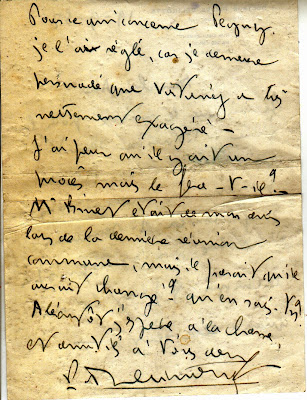 Pour ce qui concerne Peguy,
je l'ai réglé, car je demeure
persuadé que a très
nettement exagéré —
J'ai peur qu'il y ait un
procès mais le fera-t-il ?
Mr Binet était de mon avis
lors de la dernière réunion
commune, mais il paraît qu'il
aurait changé ? qu'en
A bientôt, à la chasse,
et amitiés à vous deux